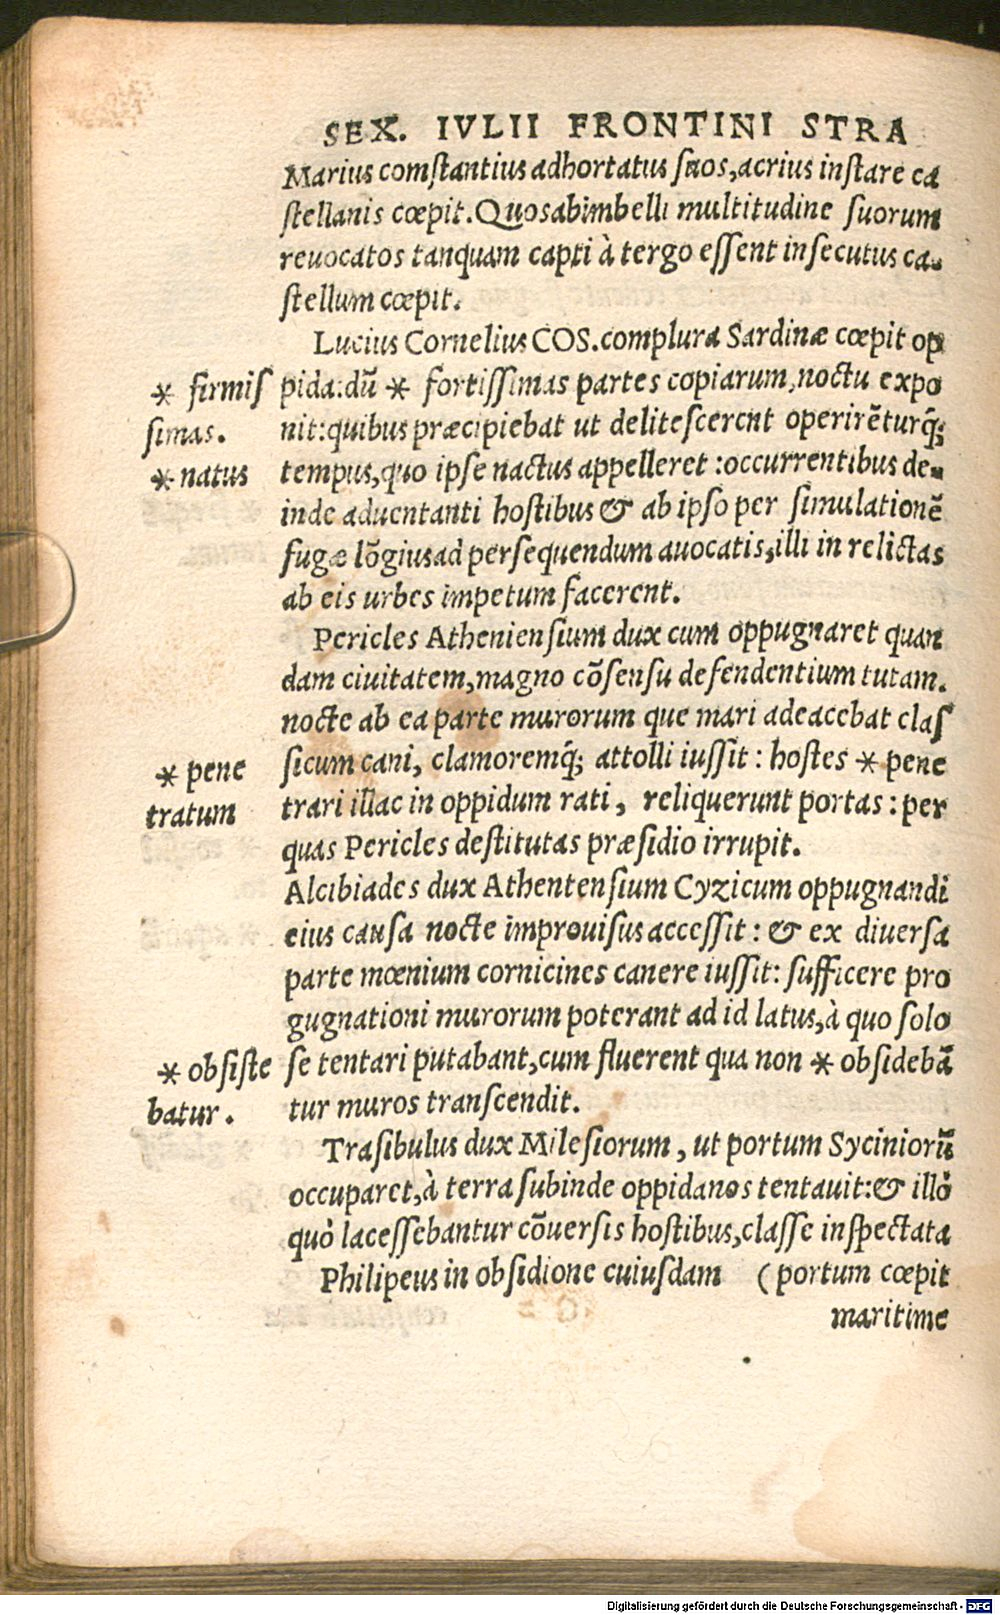 SEX. IVLII FRONTINI STRA
Marius comſtantius adhortatus ſuos, acrius inſtare ca
ſtellanis cœpit. Quos ab imbelli multitudine ſuorum
reuocatos tanquam capti à tergo eſſent inſecutus ca-
ſtellum cœpit.
Lucius Cornelius COS. complura Sardinæ cœpit op
pida: dū * fortiſſimas partes copiarum, noctu expo
nit: quibus præcipiebat ut deliteſcerent operirēturq́;
tempus, quo ipſe nactus appelleret: occurrentibus de-
inde aduentanti hoſtibus & ab ipſo per ſimulationē
fugæ lōgius ad perſequendum auocatis, illi in relictas
ab eis urbes impetum facerent.
Pericles Athenienſium dux cum oppugnaret quan
dam ciuitatem, magno cōſenſu defendentium tutam.
nocte ab ea parte murorum que mari adeacebat claſ
ſicum cani, clamoremq́; attolli iuſſit: hoſtes * pene
trari illac in oppidum rati, reliquerunt portas: per
quas Pericles deſtitutas præſidio irrupit.
Alcibiades dux Athentenſium Cyzicum oppugnandi
eius cauſa nocte improuiſus acceſſit: & ex diuerſa
parte mœnium cornicines canere iuſſit: ſufficere pro
gugnationi murorum poterant ad id latus, à quo ſolo
ſe tentari putabant, cum fluerent qua non * obſidebā
tur muros tranſcendit.
Traſibulus dux Mileſiorum, ut portum Syciniorū
occuparet, à terra ſubinde oppidanos tentauit: & illò
quò laceſſebantur cōuerſis hoſtibus, claſſe inſpectata
Philipeus in obſidione cuiuſdam (portum cœpit
maritime
* firmiſ
ſimas.
* natus
* pene
tratum
* obſiſte
batur.
Digitalisierung gefördert durch die Deutsche Forschungsgemeinschaft - DFG